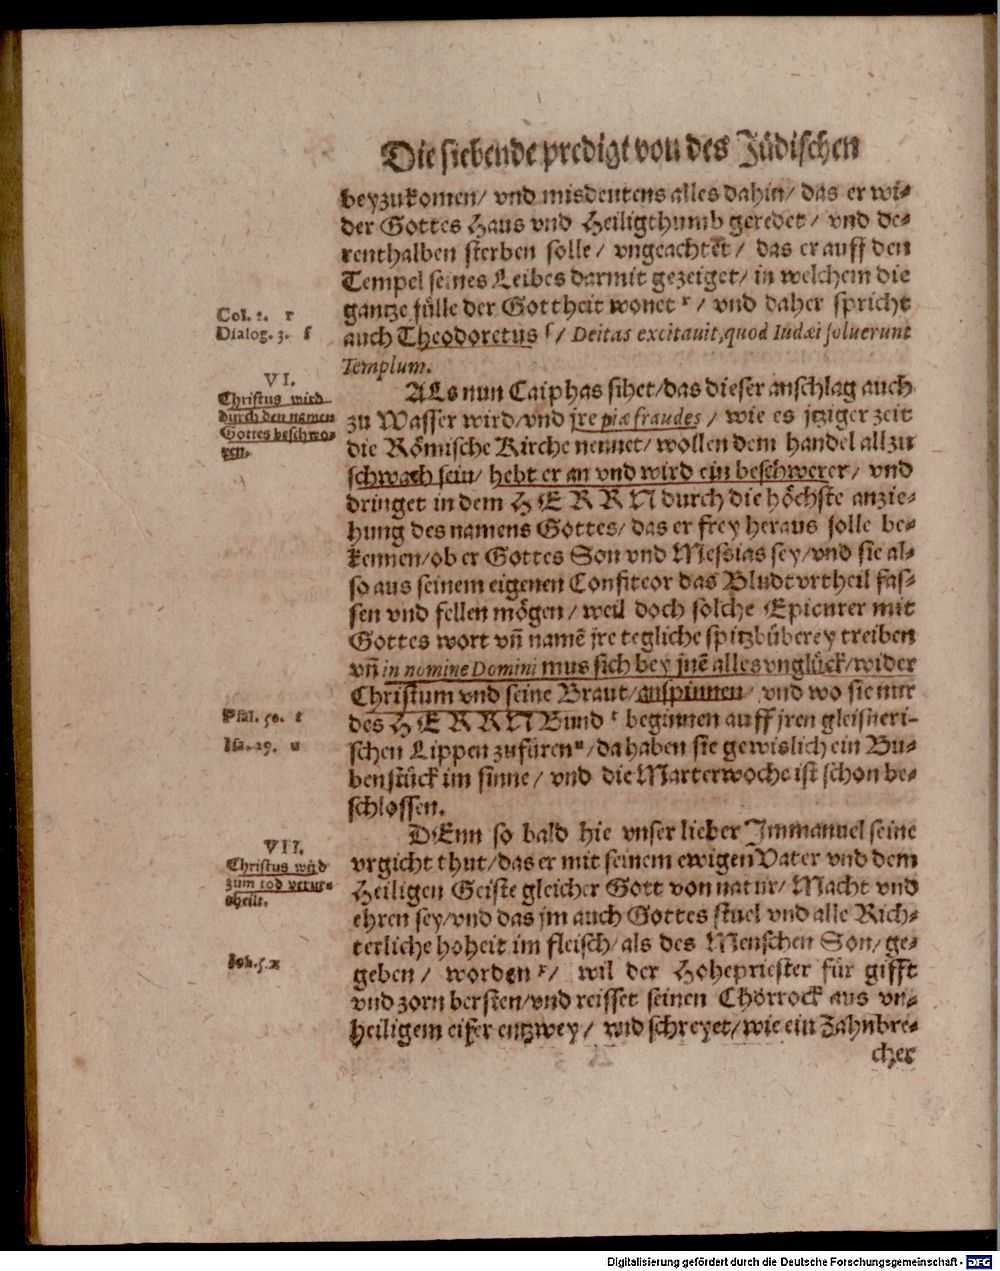 Die siebende predigt von des Jüdischen
beyzukomen/ vnd misdeutens alles dahin/ das er wi-
der Gottes Haus vnd Heiligthumb geredet / vnd de-
renthalben sterben solle / vngeachtet / das er auff den
Tempel seines Leibes darmit gezeiget/ in welchem die
gantze fülle der Gottheit wonet r / vnd daher spricht
auch Theodoretus ſ / Deitas excitauit, quod Iudæi soluerunt
Templum.
Col. 2. r
Dialog. 3. ſ
VI.
Christus wird
durch den namen
Gottes beschwo-
ren.
ALs nun Caiphas sihet/ das dieser anschlag auch
zu Wasser wird/ vnd jre piæ fraudes / wie es jtziger zeit
die Römische Kirche nennet/ wollen dem handel allzu
schwach sein/ hebt er an vnd wird ein beschwerer/ vnd
dringet in dem HERRN durch die höchste anzie-
hung des namens Gottes/ das er frey heraus solle be-
kennen/ ob er Gottes Son vnd Messias sey/ vnd sie al-
so aus seinem eigenen Confiteor das Bludturtheil fas-
sen vnd fellen mögen / weil doch solche Epicurer mit
Gottes wort vñ namẽ jre tegliche spitzbüberey treiben
vñ in nomine Domini mus sich bey jnẽ alles vnglück/ wider
Christum vnd seine Braut/ anspinnen/ vnd wo sie nur
des HERRN Bund t beginnen auff jren gleisneri-
schen Lippen zufüren u / da haben sie gewislich ein Bu-
benstück im sinne / vnd die Marterwoche ist schon be-
schlossen.
Psal. 50. t
Isa. 29. u
VII.
Christus wird
zum tod verur-
theilt.
DEnn so bald hie vnser lieber Immanuel seine
vrgicht thut/ das er mit seinem ewigen Vater vnd dem
Heiligen Geiste gleicher Gott von natur/ Macht vnd
ehren sey/ vnd das jm auch Gottes stuel vnd alle Rich-
terliche hoheit im fleisch/ als des Menschen Son/ ge-
geben / worden x /  wil der Hohepriester für gifft
vnd zorn bersten/ vnd reisset seinen Chorrock aus vn-
heiligem eifer entzwey / vnd schreyet/ wie ein Zahnbre-
cher
Joh. 5. x
Digitalisierung gefördert durch die Deutsche Forschungsgemeinschaft - DFG